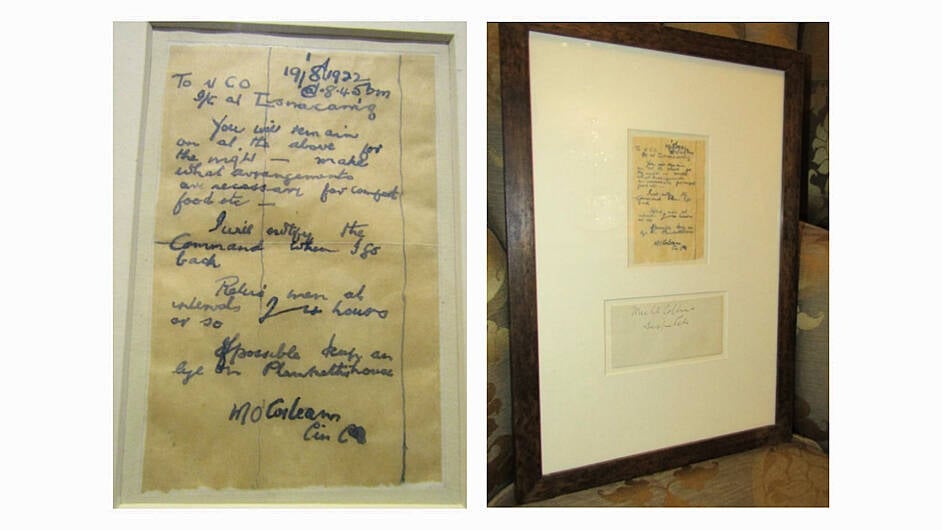 19/8/1922
To N C O @ 8.45pm
I/c at
You will remain
on at the above for
the night — make
what arrangements
are necessary for comfort
food etc —
I will notify the
Command when I go
back
Relieve men at
intervals of 4 hours
or so
If possible keep an
eye on Plunketts house
M O Coileain
Cin C
Collins